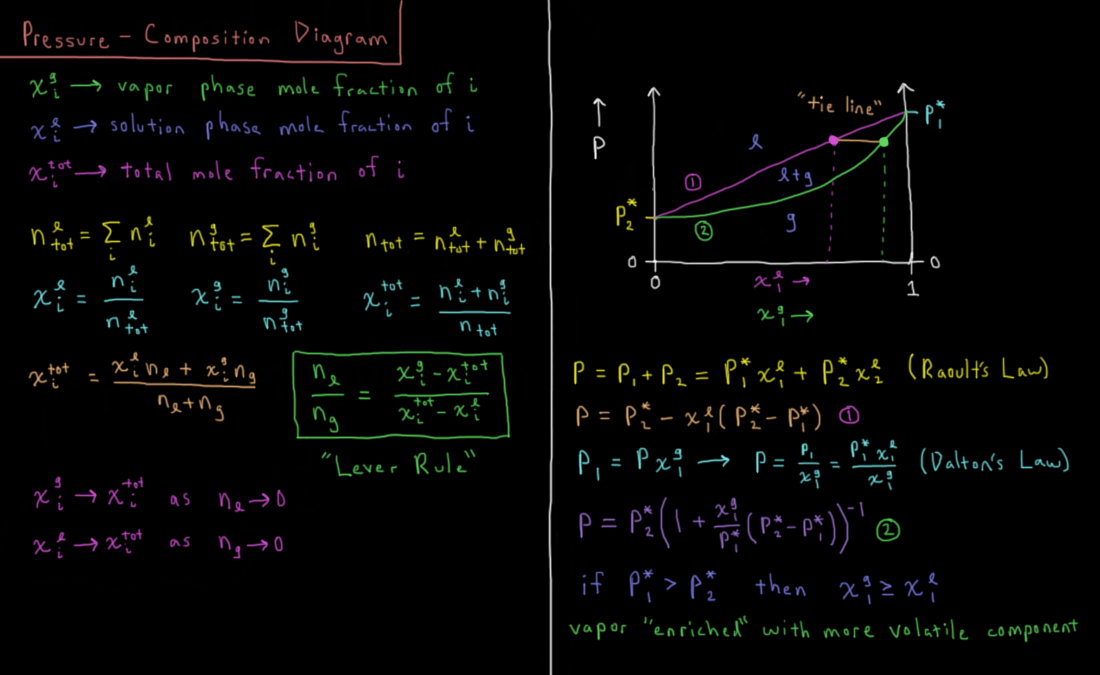 Pressure – Composition Diagram
xᵢᵍ → vapor phase mole fraction of i
xᵢˡ → solution phase mole fraction of i
xᵢᵗᵒᵗ → total mole fraction of i
nₜₒₜˡ = Σᵢ nᵢˡ   nₜₒₜᵍ = Σᵢ nᵢᵍ   nₜₒₜ = nₜₒₜˡ + nₜₒₜᵍ
xᵢˡ = nᵢˡ / nₜₒₜˡ   xᵢᵍ = nᵢᵍ / nₜₒₜᵍ   xᵢᵗᵒᵗ = (nᵢˡ + nᵢᵍ) / nₜₒₜ
xᵢᵗᵒᵗ = (xᵢˡ n_l + xᵢᵍ n_g) / (n_l + n_g)   n_l / n_g = (xᵢᵍ − xᵢᵗᵒᵗ) / (xᵢᵗᵒᵗ − xᵢˡ)
"Lever Rule"
xᵢᵍ → xᵢᵗᵒᵗ as n_l → 0
xᵢˡ → xᵢᵗᵒᵗ as n_g → 0
"tie line"
P₁*
↑
P
l
① l+g
P₂*
② g
0 0
0 x₁ˡ → 1
x₁ᵍ →
P = P₁ + P₂ = P₁* x₁ˡ + P₂* x₂ˡ (Raoult's Law)
P = P₂* − x₁ˡ (P₂* − P₁*) ①
P₁ = P x₁ᵍ → P = P₁ / x₁ᵍ = P₁* x₁ˡ / x₁ᵍ (Dalton's Law)
P = P₂* (1 + x₁ᵍ / P₁* (P₂* − P₁*))⁻¹ ②
if P₁* > P₂* then x₁ᵍ ≥ x₁ˡ
vapor "enriched" with more volatile component